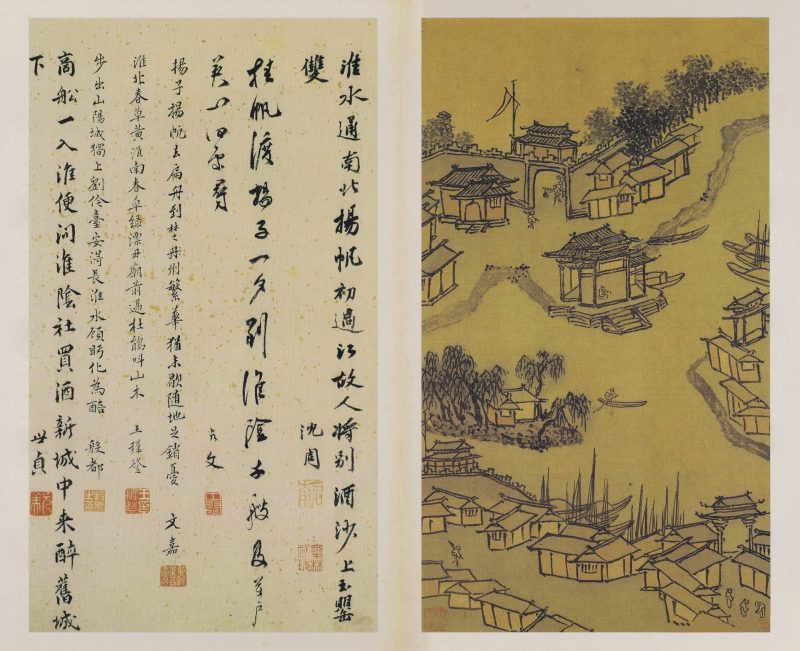 淮水通南北揚帆初過江故人將別酒沙上玉罌
雙 沈周
挂帆渡揚子一夕到淮陰千艘及萬戶
揚子揚帆去扁舟到楚州繁華猶未歇隨地足銷憂 文嘉
淮北春草黃淮南春草綠漂母廟前過杜鵑叫山木 王穉登
步出山陽城獨上劉伶臺安得長淮水顧盼化為醅 殷都
商船一入淮便問淮陰社買酒新城中来醉舊城
下 世貞